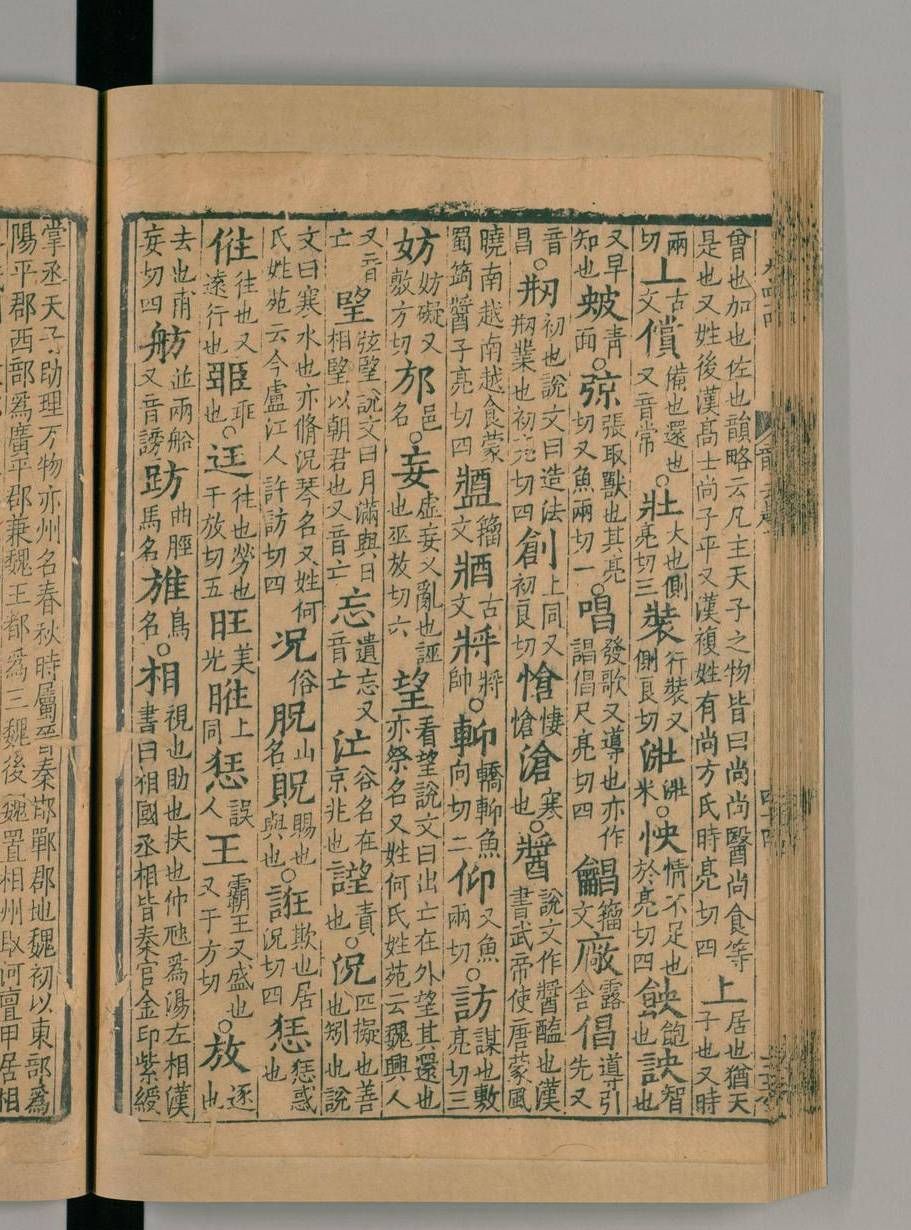 曾也加也佐也韻略云凡主天子之物皆曰尚尚醫尚食等是也又姓後漢高士尚子平又漢複姓有尚方氏時亮切四上居也猶天子也又時
兩切丄古文償備也還也又音常○壯大也側亮切三裝行裝又側良切米○怏情不足也於亮切四䬬飽也詇智也
又早知也青面○弶張取獸也其亮切又魚兩切一○唱發歌又導也亦作誯倡尺亮切四籀文廠露舍倡導引先又
音昌○刱初也說文曰造法刱業也初亮切四創上同又初良切愴悽愴滄寒也○醬說文作醬醢也漢書武帝使唐蒙風
曉南越南越食蒙蜀蒟醬子亮切四籀文古文將將帥○䡴轎䡴魚向切二仰又魚兩切○訪謀也敷亮切三
妨妨礙又敷方切邡邑名○妄虛妄又亂也誣也巫放切六望看望說文曰出亡在外望其還也亦祭名又姓何氏姓苑云魏興人
又音亡朢弦朢說文曰月滿與日相朢以朝君也又音亡忘遺忘又音亡汒谷名在京非也責也○況匹擬也善也矧也說
文曰寒水也亦脩況琴名又姓何氏姓苑云今廬江人許訪切四况俗山名貺賜也與也○誑欺也居況切四惑也
往也又遠行也乖也○迋往也勞也于放切五旺美光暀上同誤人王霸王又盛也又于方切○放逐也
去也甫妄切四舫並兩船又音謗趽曲脛馬名鳥名○相視也助也扶也仲虺為湯左相漢書曰相國丞相皆秦官金印紫綬
掌丞天子助理万物亦州名春秋時屬晉秦邯鄲郡地魏初以東部為
陽平郡西部為廣平郡兼魏王都為三魏後魏置相州取河亶甲居相